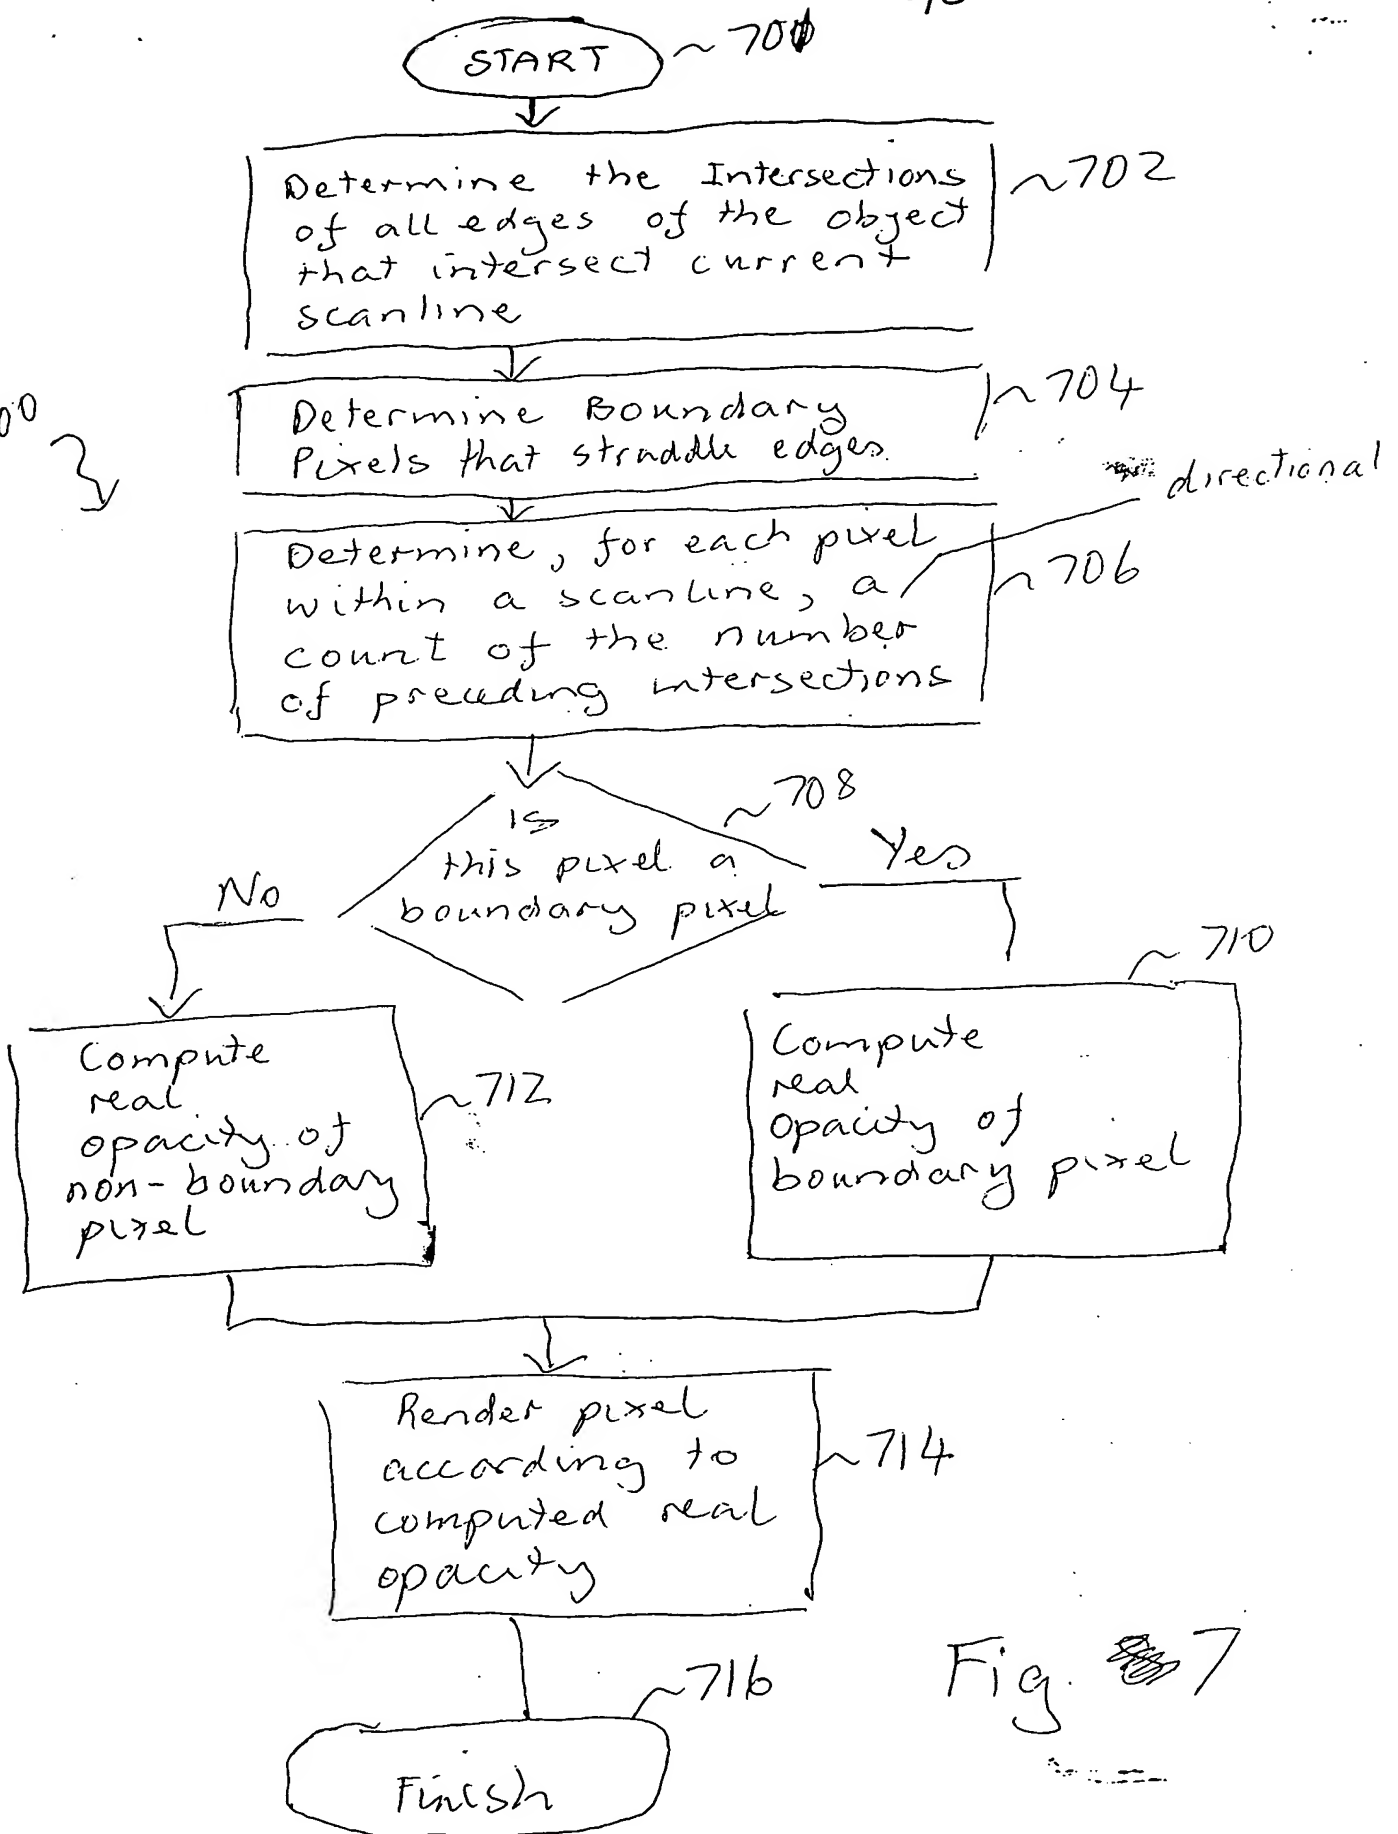 START
~ 701
Determine the Intersections
of all edges of the object
that intersect current
scanline
~702
00
Determine Boundary
Pixels that straddle edges
~704
directional
Determine, for each pixel
within a scanline, a
count of the number
of preceding intersections
~706
is
this pixel a
boundary pixel
~708
No
Yes
~710
Compute
real
opacity of
non-boundary
pixel
~712
Compute
real
opacity of
boundary pixel
Render pixel
according to
computed real
opacity
~714
Fig. 7
~716
Finish